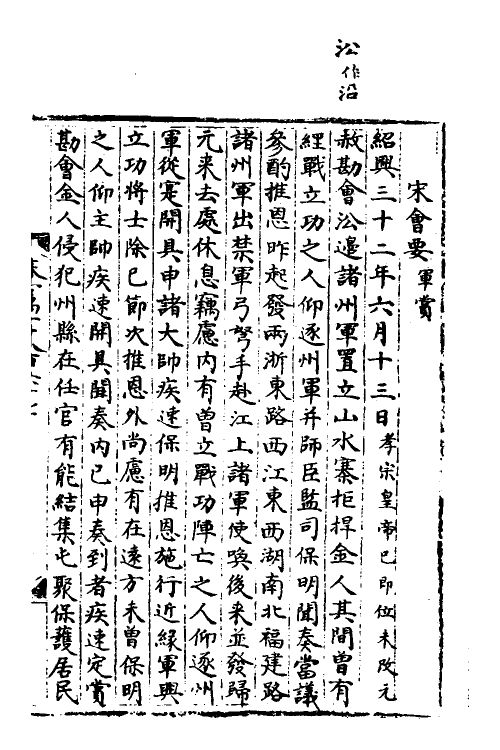 㳂作沿
宋會要 軍賞
紹興三十二年六月十三日孝宗皇帝已即位未改元
赦勘會㳂邊諸州軍置立山水寨拒捍金人其間曾有
經戰立功之人仰逐州軍并帥臣監司保明聞奏當議
參酌推恩昨起發兩浙東路西江東西湖南北福建路
諸州軍出禁軍弓弩手赴江上諸軍使喚後来並發歸
元来去處休息竊慮内有曾立戰功陣亡之人仰逐州
軍從寔開具申諸大帥疾速保明推恩施行近緣軍興
立功將士除已節次推恩外尚慮有在遠方未曾保明
之人仰主帥疾速開具聞奏内已申奏到者疾速定賞
勘會金人侵犯州縣在任官有能結集屯聚保護居民